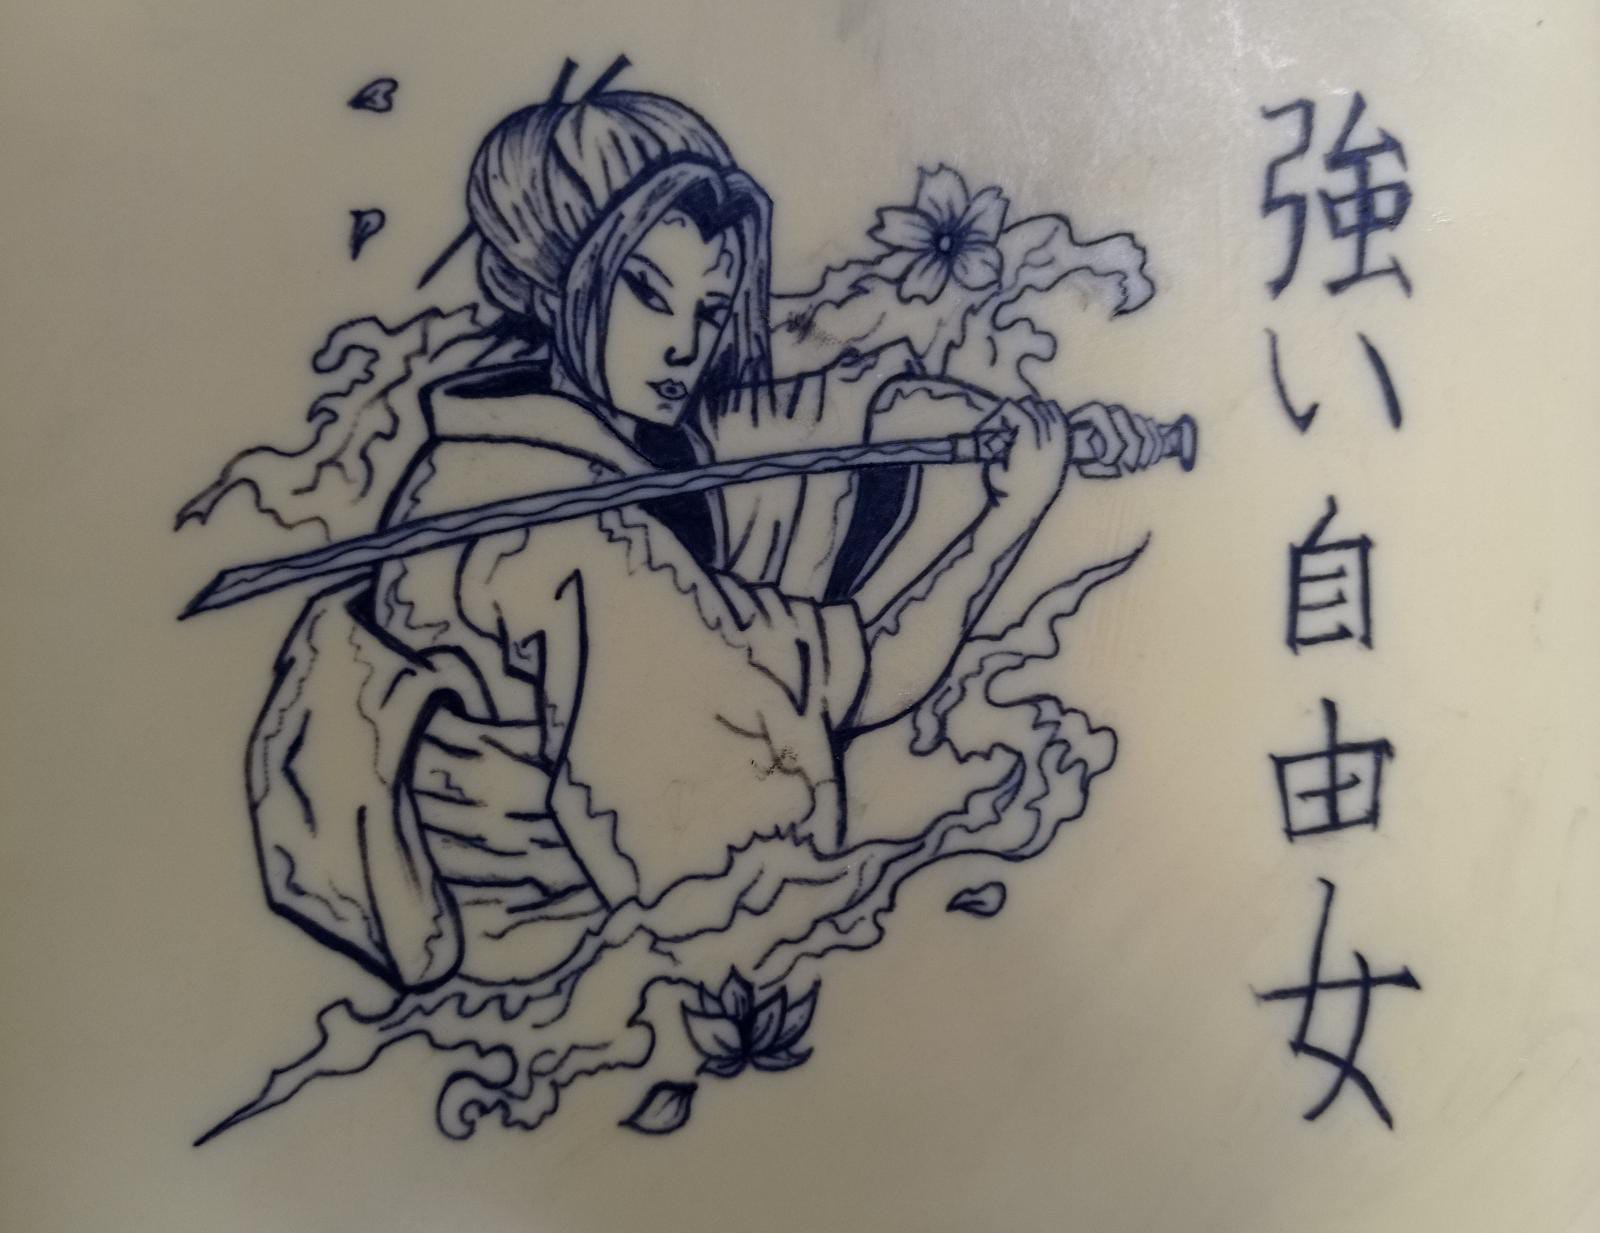 強い自由女